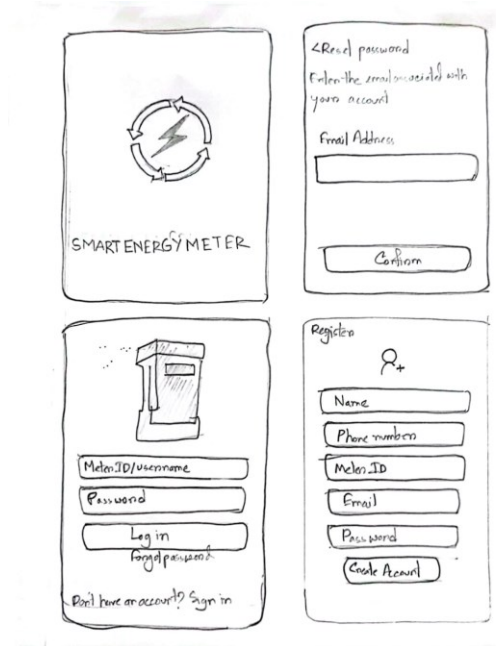 SMART ENERGY METER
<Reset password
Enter the email associated with
your account
Email Address
Confirm
Meter ID/username
Password
Log in
Forgot password
Don't have an account? Sign in
Register
Name
Phone number
Meter ID
Email
Password
Create Account